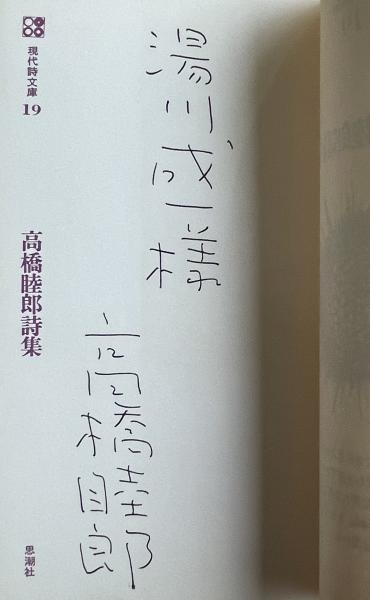 湯川成一様
高橋睦郎
現代詩文庫
19
高橋睦郎詩集
思潮社